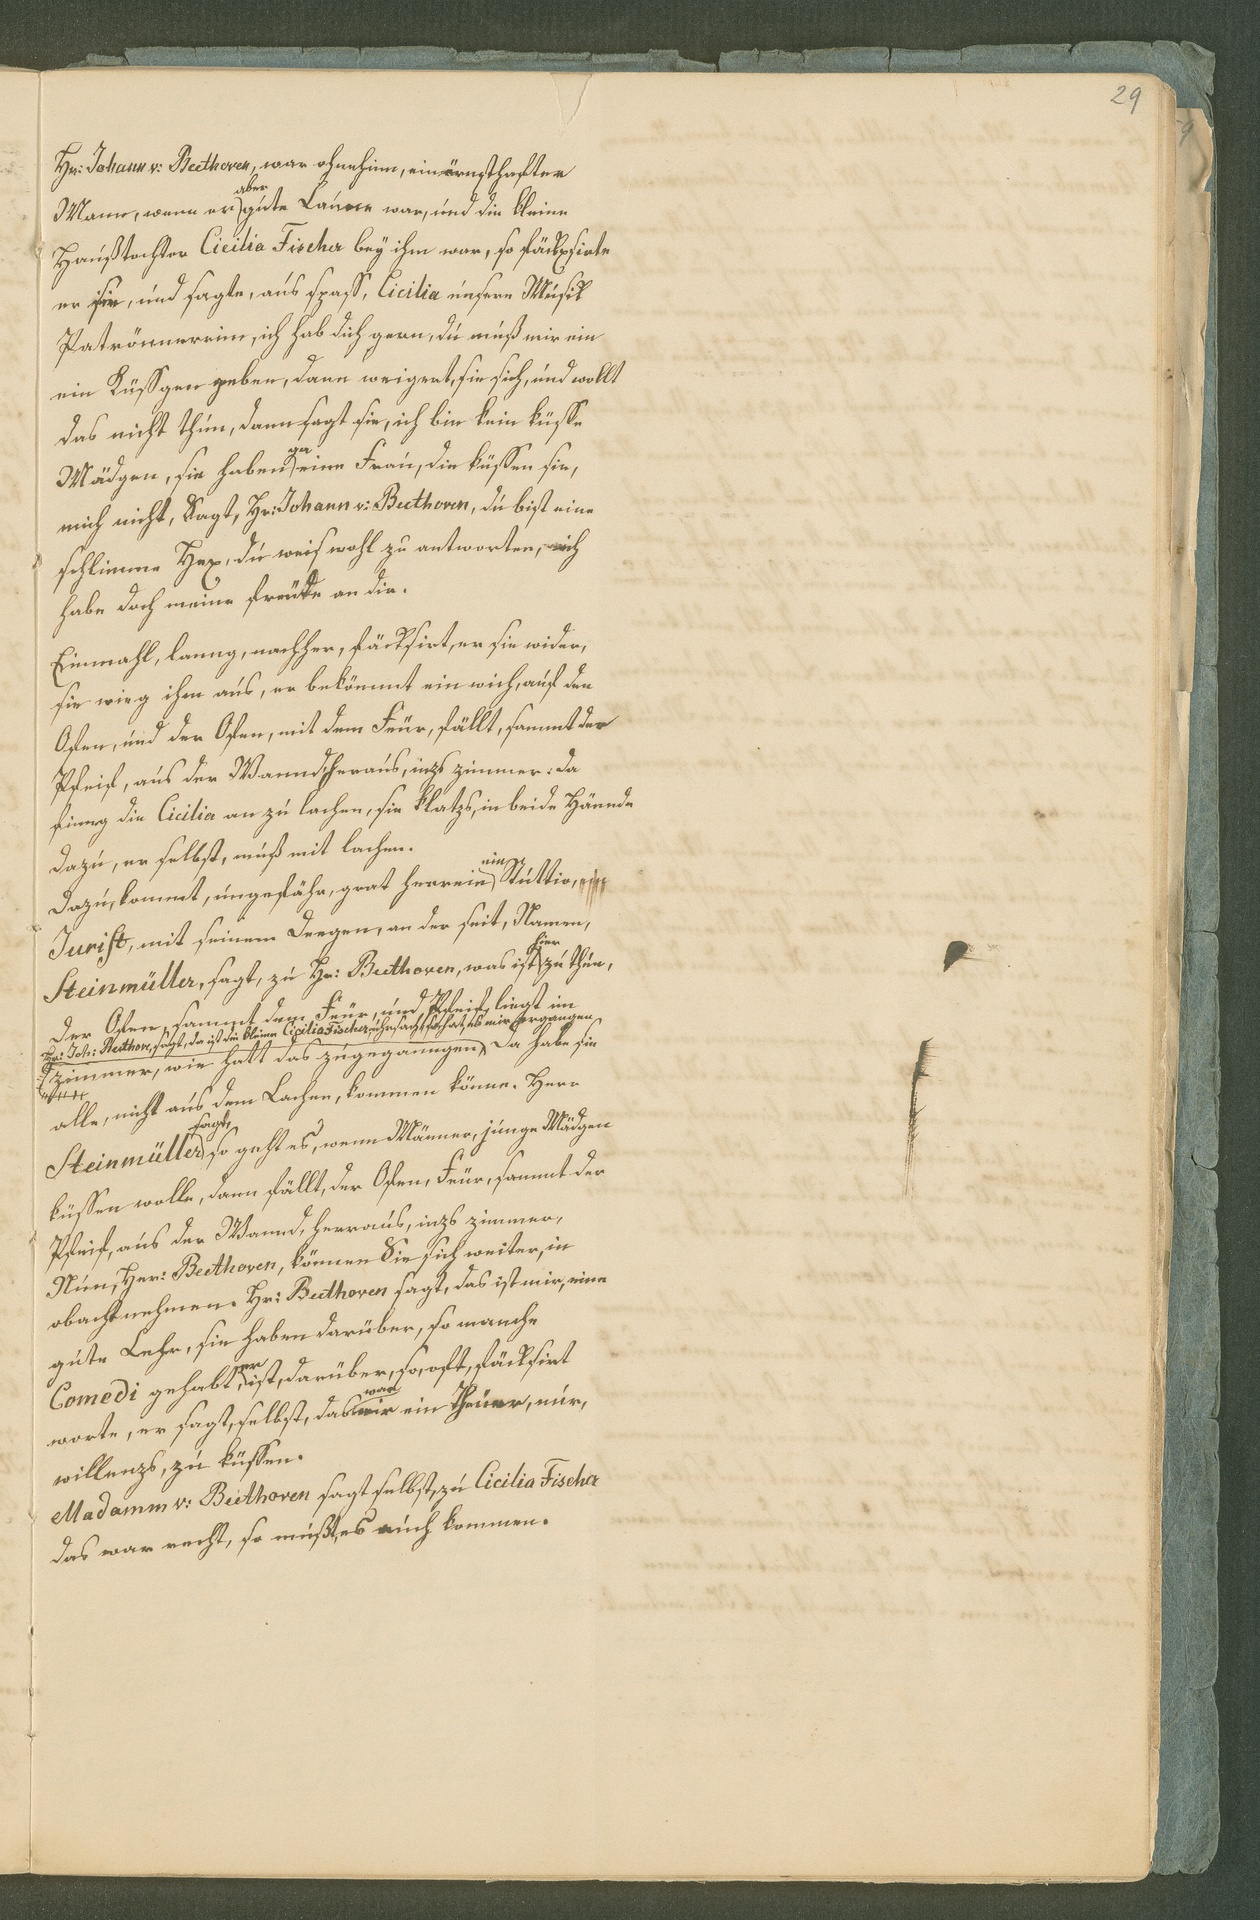 29
Hr: Johann v: Beethoven, war ohnehinn, ein örnsthafter
Mann, wenn er aber gúte Laúne war, und die kleine
Haußtochter Cicilia Fischer bey ihm war, so fäckßirte
er sie, und sagte, aús spass, Cicilia únsere Músik
Patrönnerrinn, ich hab dich gern, dú múß mir ein
ein Küssgen geben, dann weigert, sie sich, und wollt
das nicht thún, dann sagt sie, ich bin kein küsse
Mädgen, sie haben ja eine Fraú, die küssen sie,
mich nicht, Sagt, Hr: Johann v: Beethoven, dú bist eine
schlimme Hex, dú weis wohl zu antworten, ich
habe doch meine freúde an dir.
Einmahl, lanng, nachher, fäcksirt, er sie wider,
sie wieg ihm aús, er bekömmt ein wich, aúf den
Ofen, únd der Ofen, mit dem Feúr, fällt, sammt der
Pfeif, aús der Wannd, heraús, inzs zimmer: da
finng die Cicilia an zú lachen, sie klatzs, in beide Hännde
dazú, er selbst, múß mit lachen.
dazú, kommt, úngefähr, grat herrein ein Stúttio,
Jurist, mit seinem Deegen, an der seit, Namen,
Steinmüller, sagt, zú Hr: Beethoven, was ist hier zú thún,
der Ofen, sammt dem Feúr, und Pfeif, liegt im
Hr: Joh: Beethove, sagt, da ist die kleine Cicilia Fischer, úhrsach, so hat, es mir ergangen
zimmer, wie hatt das zúgeganngen, Da habe sie
alle, nicht aús dem Lachen, kommen könne. Herr
Steinmüller sagt, so geht es, wenn Männer, júnge Mädgen
küssen wolle, dann fällt, der Ofen, Feúr, sammt der
Pfeif, aús der Wannd, herraús, inzs zimmer,
Nún, Her: Beethoven, können Sie sich weiter, in
obacht nehmen. Hr: Beethoven sagt, das ist mir, eine
gúte Lehr, sie haben darüber, so manche
Comedi gehabt, er ist, darüber, so, oft, fäcksirt
worte, er sagt, selbst, das war ein theúer, núr,
willenzs, zú küssen.
Madamm v: Beethoven sagt selbst, zú Cicilia Fischer
das war recht, so múßt, es aúch kommen.